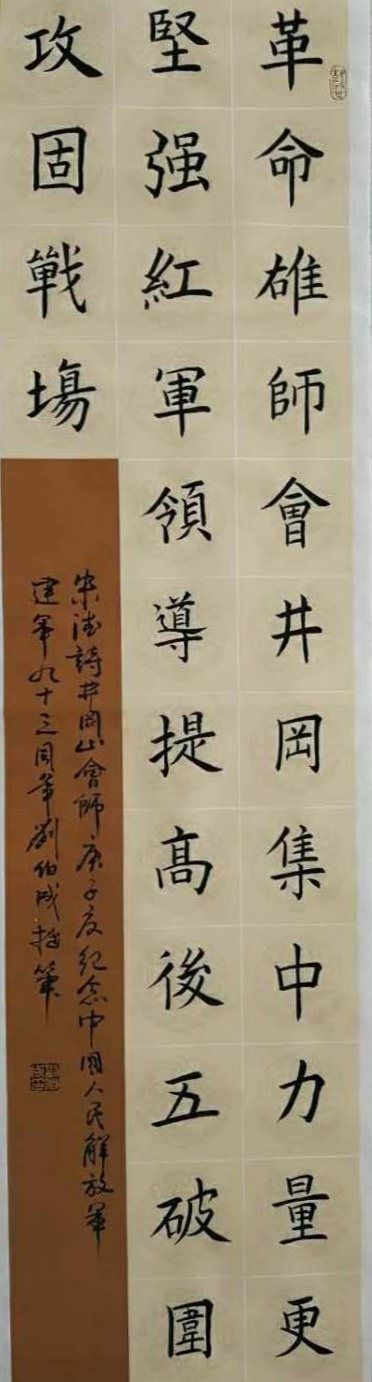 革命雄師會井岡集中力量更
堅强紅軍領導提高後五破圍
攻固戰場
朱德詩井岡山會師庚子夏紀念中國人民解放軍
建軍九十三周年劉伯成拙筆